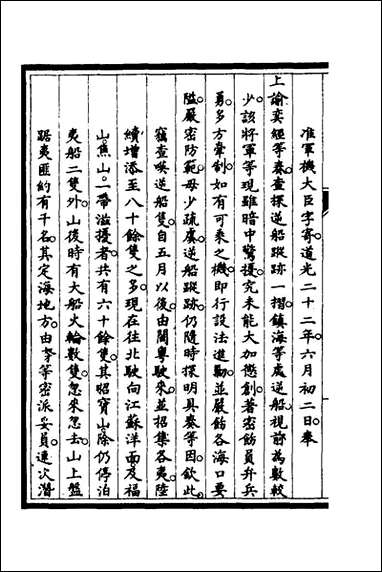 准軍機大臣字寄道光二十二年六月初二日奉
上諭奕經等奏查探逆船蹤跡一摺鎮海等處逆船視前為數較
少該將軍等現雖暗中驚擾究未能大加懲創著密飭員弁兵
勇多方牽制如有可乘之機即行設法進勦並嚴飭各海口要
隘嚴密防範毋少疏虞逆船蹤跡仍隨時探明具奏等因欽此
竊查㗆逆船隻自五月以後由閩粵駛來並招集各夷陸
續增添至八十餘隻之多現在往北駛向江蘇洋面及福
山焦山一帶滋擾者共有六十餘隻其昭寶山除仍停泊
夷船二隻外山後時有大船火輪數隻忽來忽去山上盤
踞夷匪約有千名其定海地方由等密派妥員連次潛